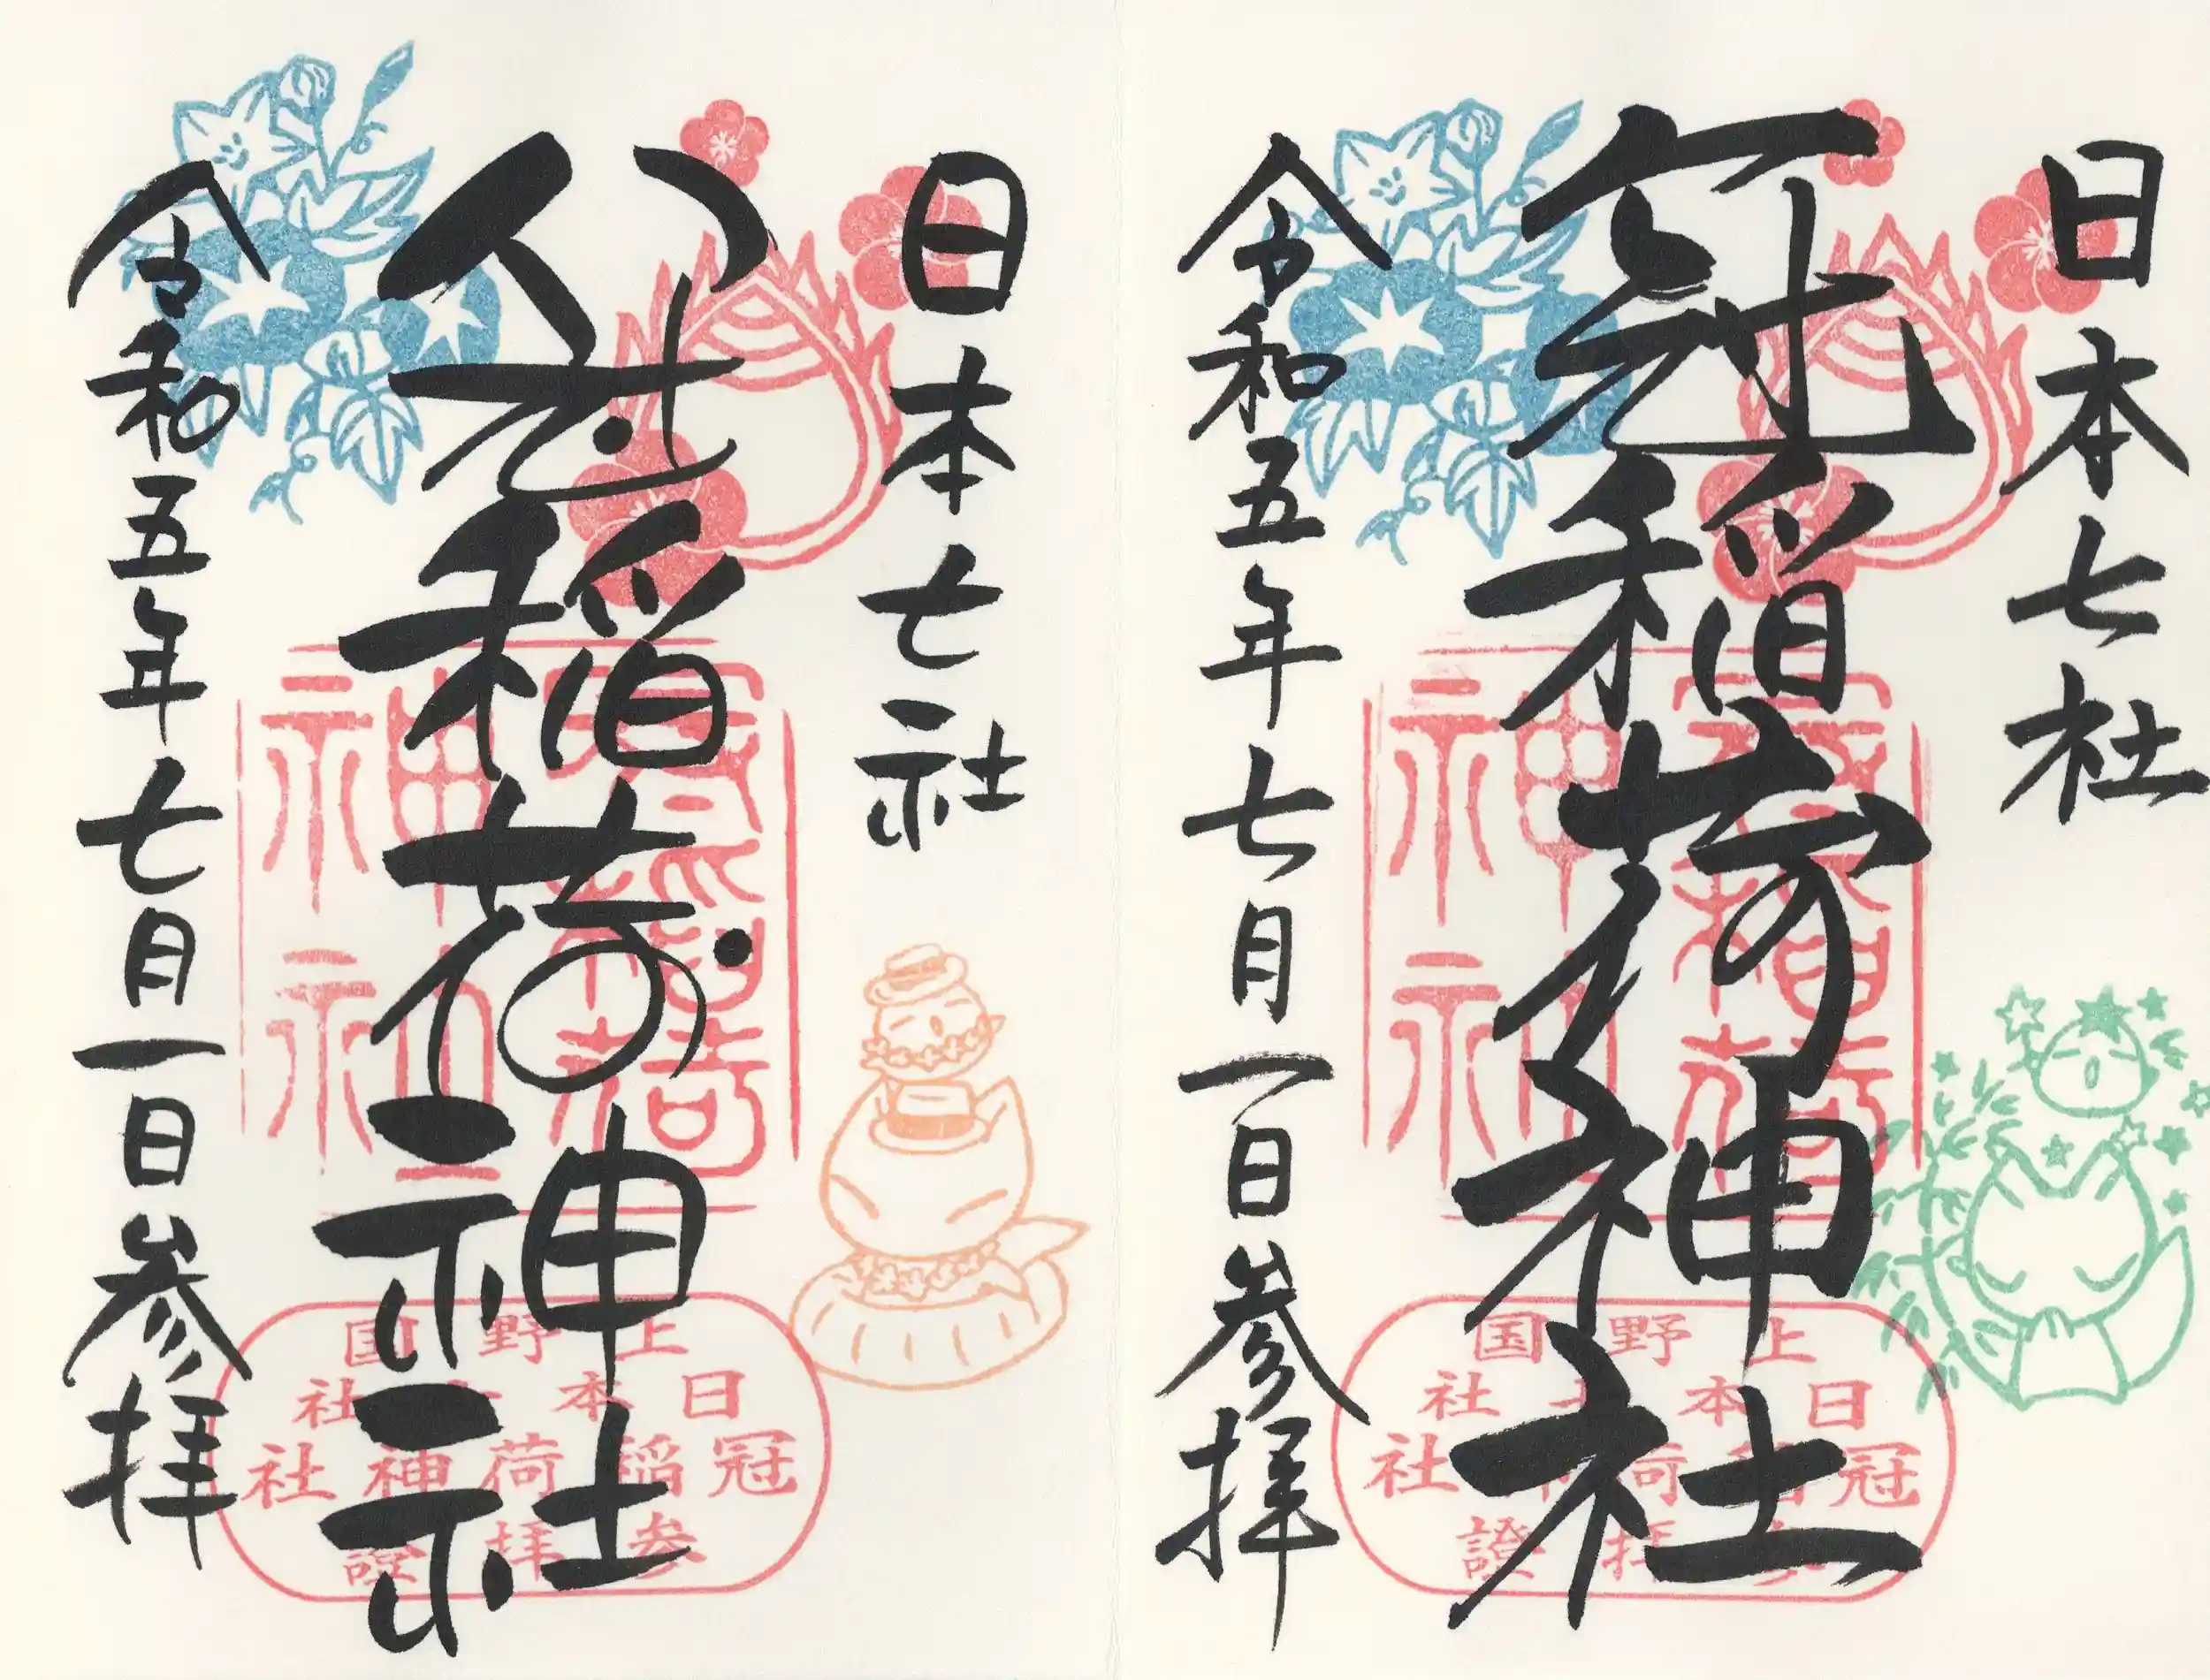 日本七社
冠稲荷神社
冠稲荷神社
上野国
日本七社
冠稲荷神社
参拝證
令和五年七月一日参拝
日本七社
冠稲荷神社
冠稲荷神社
上野国
日本七社
冠稲荷神社
参拝證
令和五年七月一日参拝